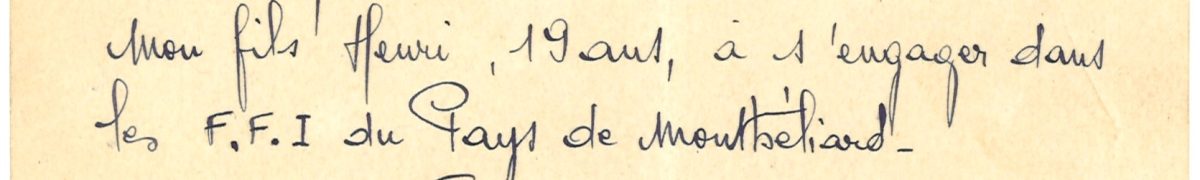 Mon fils Henri, 19 ans, à s'engager dans
les F.F.I du Pays de Montbéliard -